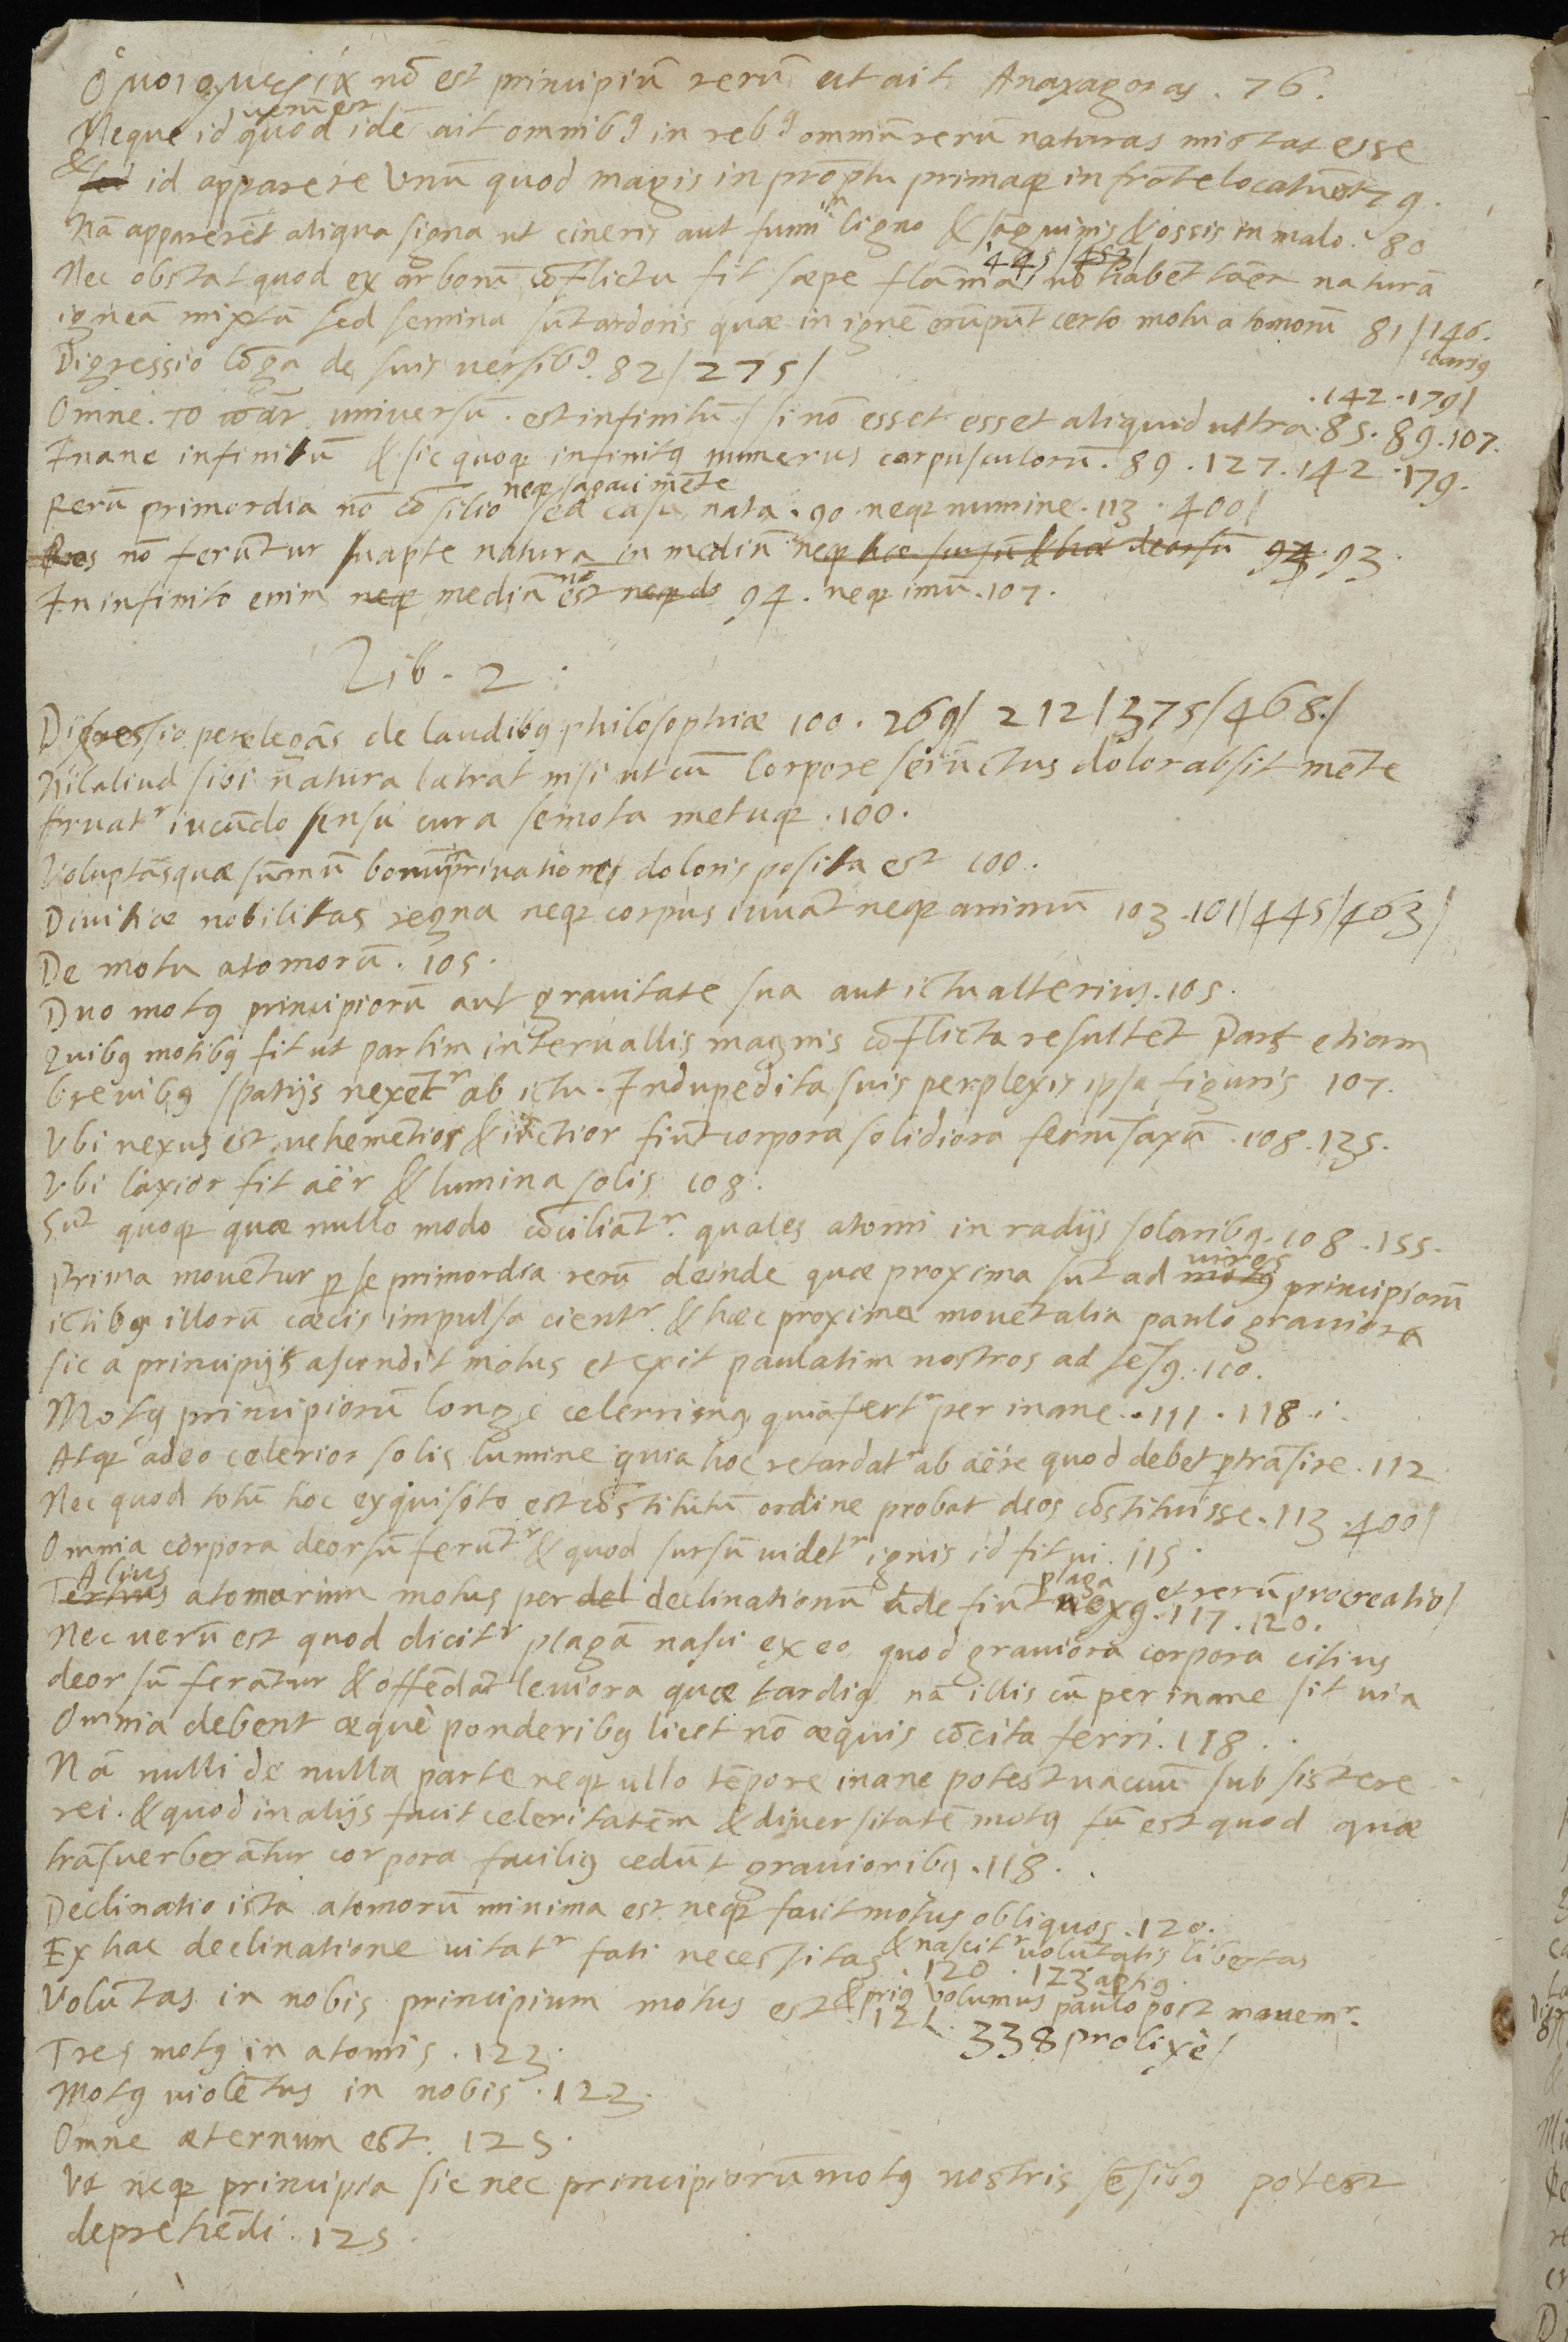 ὁμοιομέρεια nō est principiū rerū ut ait Anaxagoras . 76.
uerū est
Neque id quod idē ait omnibꝰ in rebꝰ omniū rerū naturas mistas esse
& sed id apparere Vnū quod magis in prōptu primaqꝫ in frōte locatū est 79.
Nā apparerēt aliqua signa ut cineris aut fumi in ligno & sāguinis & ossis in malo . 80
445/452/
Nec obstat quod ex arborū cōflictu fit sæpe flāma, nō habēt tn̄ naturā
igneā mixtā sed semina sūt ardoris quæ in ignē erūpūt certo motu atomorū 81/146.
clariꝰ
Digressio lōga de suis uersibꝰ. 82/275/
.142.179/
Omne . τὸ πᾶν . uniuersū . est infinitū / si nō esset esset aliquid ultra . 85. 89. 107.
Inane infinitū & sic quoqꝫ infinitꝰ numerus corpusculorū . 89 . 127. 142 . 179.
neqꝫ sagaci mēte
Rerū primordia nō cōsilio sed casu nata . 90 neqꝫ numine . 113 . 400/
Res nō ferūtur suapte natura in mediū neqꝫ hæ sursū & hæ deorsū 94 . 93.
In infinito enim neqꝫ mediū nō est neqꝫ de 94. neqꝫ imū .107.
Lib . 2 .
Digressio perelegās de laudibꝰ philosophiæ 100 . 269/ 212/375/468/
Nil aliud sibi natura latrat nisi ut cū Corpore seiūctus dolor absit mēte
fruatʳ iucūdo sensu cura semota metuqꝫ .100.
Voluptas quæ sūmū bonū in priuatione doloris posita est 100.
Diuitiæ nobilitas regna neqꝫ corpus iuuāt neqꝫ animū 103 .101/445/463/
De motu atomorū . 105.
Duo motꝰ principiorū aut grauitate sua aut ictu alterius .105.
Quibꝰ motibꝰ fit ut partim interuallis magnis cōflicta resultet Pars etiam
breuibꝰ spatijs nexetʳ ab ictu . Indupedita suis perplexis ipsa figuris 107.
Vbi nexus est uehemētior & iūctior fiūt corpora solidiora ferrū saxū .108.135.
Vbi laxior fit aër & lumina solis 108.
Sūt quoqꝫ quæ nullo modo cōciliātʳ quales atomi in radijs solaribꝰ .108 .155.
uires
Prima mouētur ꝑ se primordia rerū deinde quæ proxima sūt ad motꝰ principiorū
ictibꝰ illorū cæcis impulsa cientʳ & hæc proxime mouēt alia paulo grauiora
sic a principijs ascendit motus et exit paulatim nostros ad sēsꝰ .110.
Motꝰ principiorū longe celerrimꝰ quia fertʳ per inane . 111 . 118 .
Atqꝫ adeo celerior solis lumine quia hoc retardatʳ ab aëre quod debet ꝑtrāsire .112
Nec quod totū hoc exquisito est cōstitutū ordine probat deos cōstituisse .113 .400/
Omnia corpora deorsū ferūtʳ & quod sursū uidetʳ ignis id fit ui . 115 .
Alius
plaga
et rerū procreatio/
Tertius atomorum motus per del declinationū ūde fiūt nexꝰ .117 .120.
Nec uerū est quod dicitʳ plagā nasci ex eo quod grauiora corpora citius
deorsū ferātur & offēdāt leuiora quæ tardiꝰ nā illis cū per inane sit uia
Omnia debent æquè ponderibꝰ licet nō æquis cōcita ferri .118 .
Nā nulli de nulla parte neqꝫ ullo tēpore inane potest uacuū subsistere
rei . & quod in alijs facit celeritatem & diuersitatē motꝰ tū est quod quæ
trāsuerberātur corpora faciliꝰ cedūt grauioribꝰ .118 .
Declinatio ista atomorū minima est neqꝫ facit motus obliquos .120.
Ex hac declinatione uitatʳ fati necessitas & nascitʳ uolūtatis libertas
. 120 . 123 aptiꝰ
Volūtas in nobis principium motus est & priꝰ uolumus paulo post mouemʳ.
. 121.
338 prolixè/
Tres motꝰ in atomis . 123.
Motꝰ violētus in nobis . 123.
Omne æternum est . 125 .
Vt neqꝫ principia sic nec principiorū motꝰ nostris sēsibꝰ potest
deprehēdi . 125 .